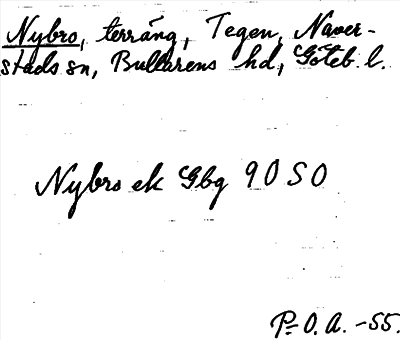 Nybro, terräng, Tegen, Naver-
stads sn, Bullarens hd, Göteb. l.
Nybro ek Gbg 90 SO
P-O. A. -55.